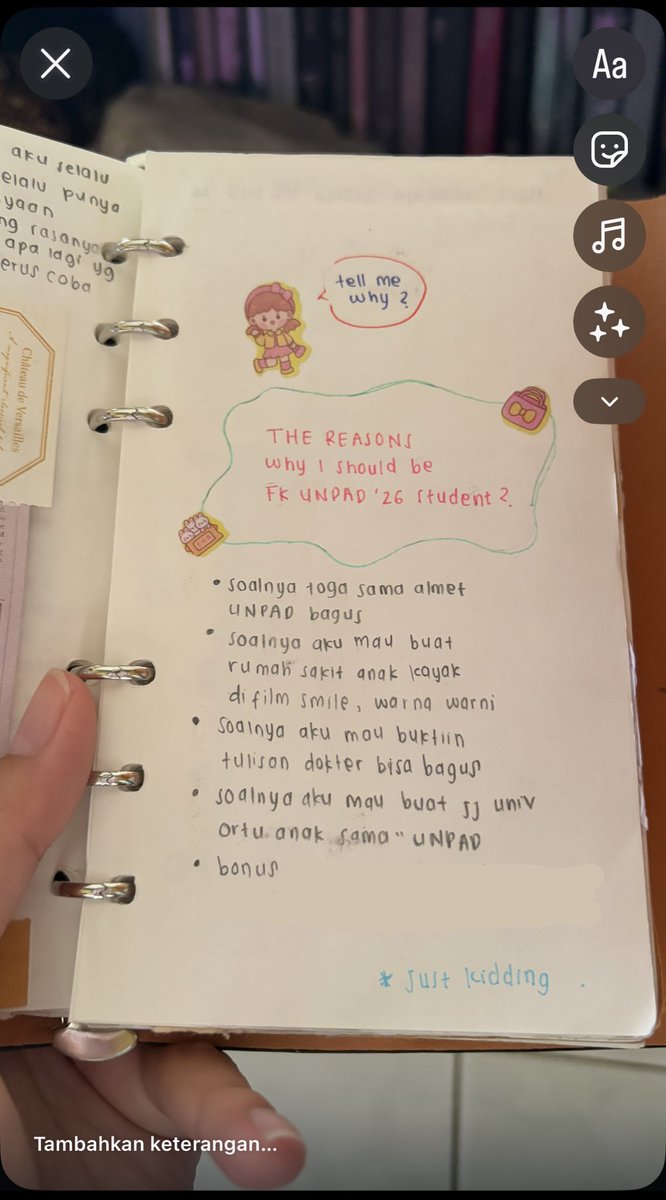 Aa
aku selalu
elalu punya
yaan
ng rasanya
apa lagi yg
erus coba
Château de Versailles
tell me
why ?
THE REASONS
why I should be
FK UNPAD '26 student ?
• soalnya toga sama almet
UNPAD bagus
• soalnya aku mau buat
rumah sakit anak kayak
di film smile, warna warni
• soalnya aku mau buktiin
tulisan dokter bisa bagus
• soalnya aku mau buat jj univ
ortu anak sama" UNPAD
• bonus
* just kidding .
Tambahkan keterangan...